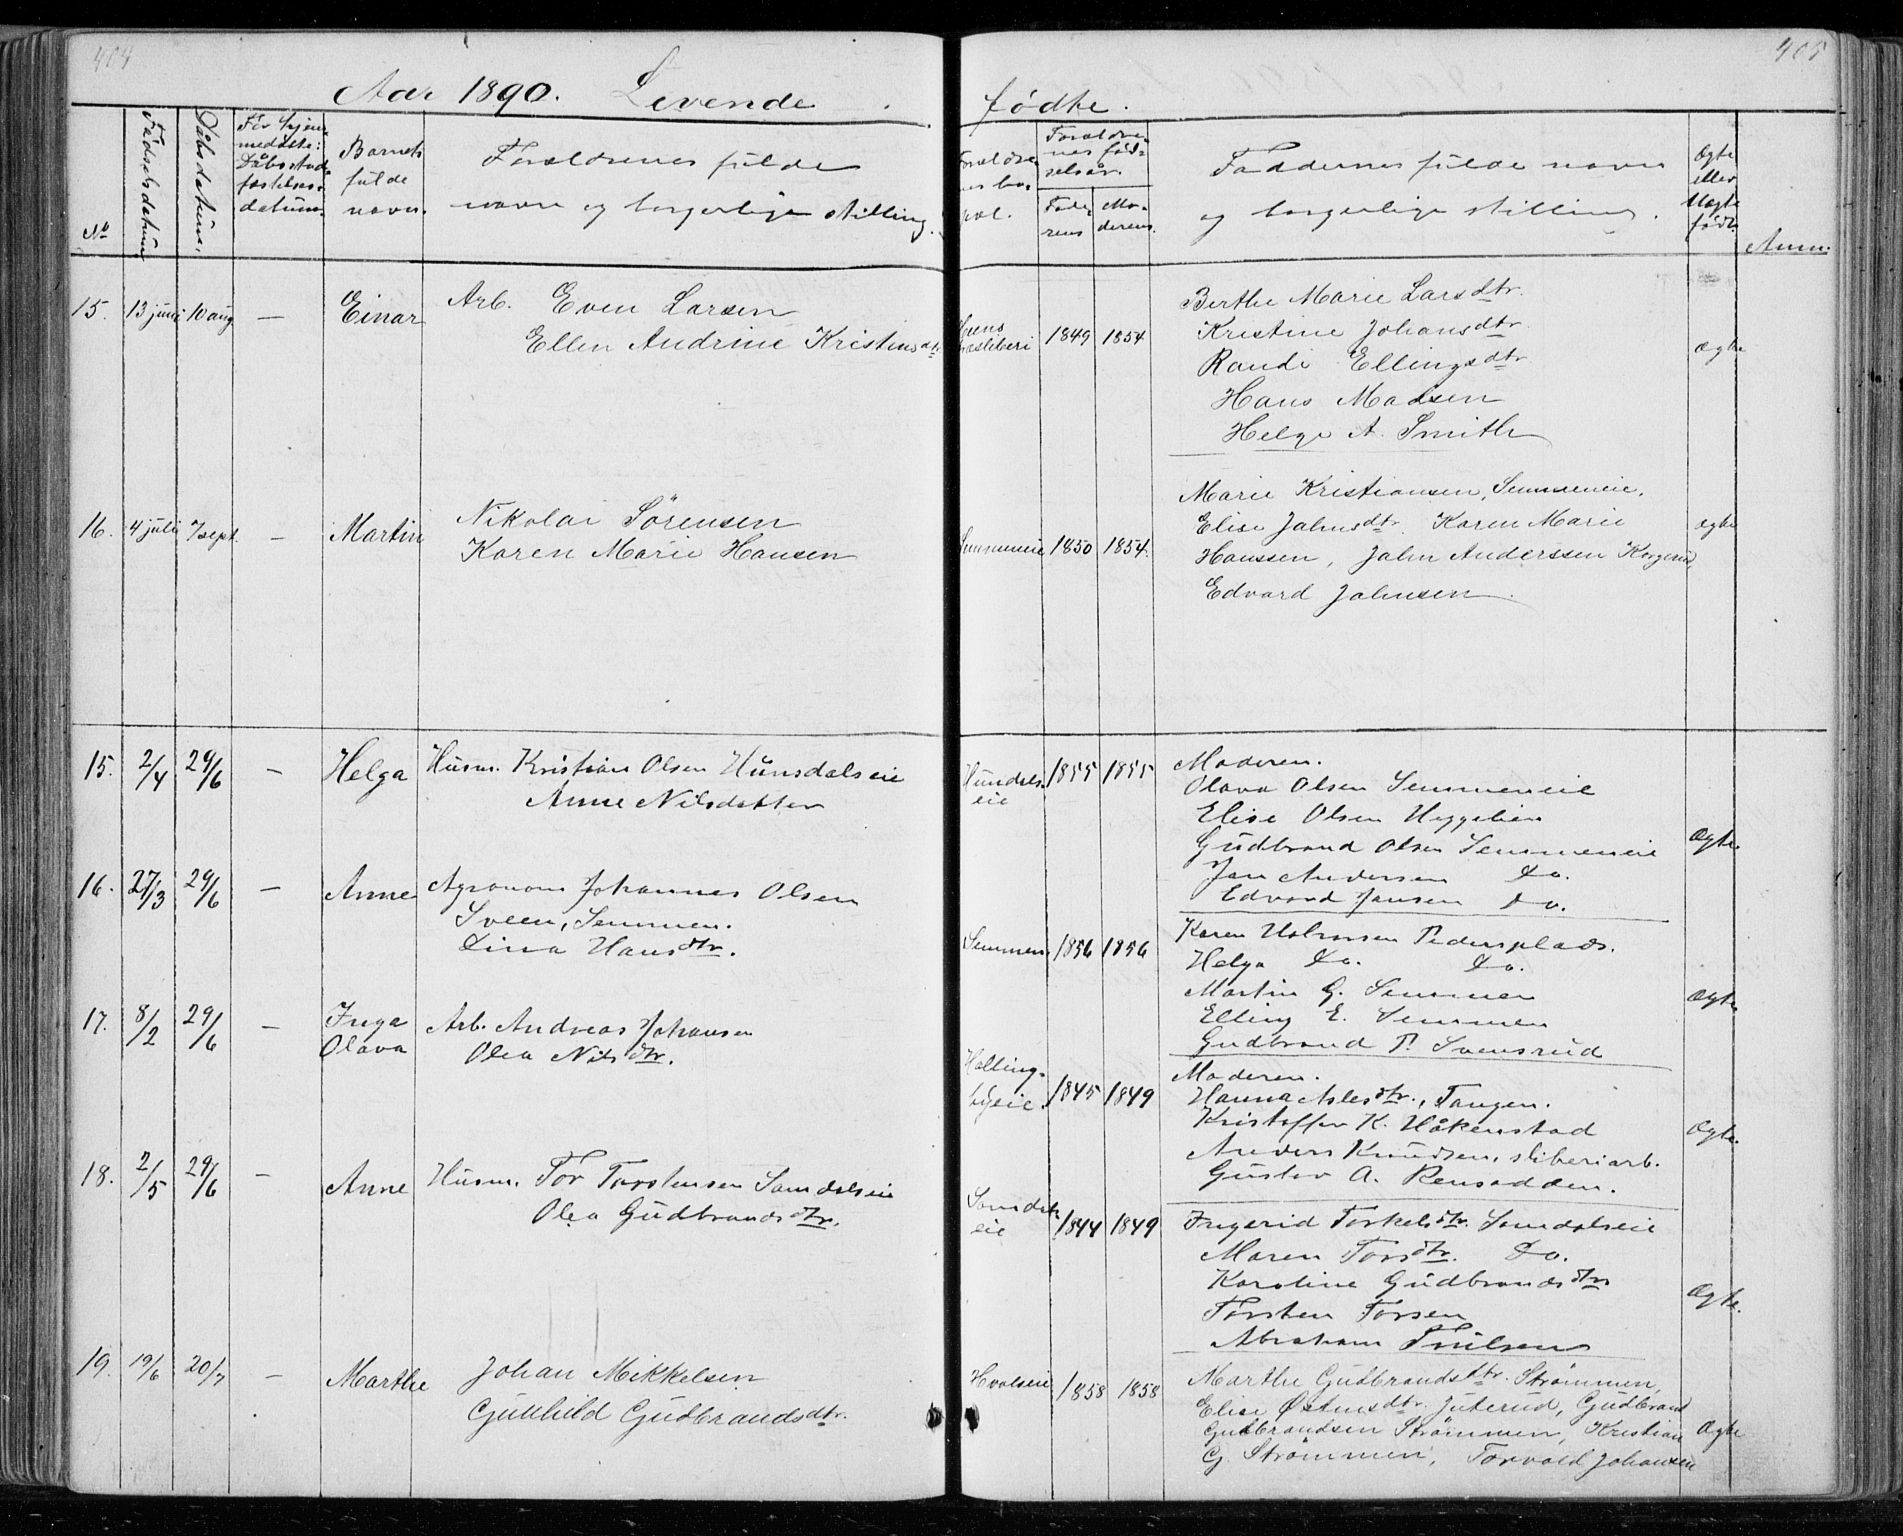 404
405
Aar 1890. Levende
fødte.
No
Fødselsdatum.
Dåbsdatum.
For hjemmedøbte: Dåbsstadfæstelsesdatum.
Barnets fulde navn.
Forældrenes fulde
navn og borgerlige stilling.
Forældrenes bopæl.
Forældrenes fødselsår.
Faderens
Moderens.
Faddernes fulde navn
og borgerlige stilling.
Ægte eller Uægte født.
Anm.
15. 13 juni 10 aug. — Einar Arb. Even Larsen
Ellen Andrine Kristensdtr.
1849 1854
Berthe Marie Larsdtr.
Kristine Johansdtr
Randi Ellingsdtr
Hans Madsen
Helge A. Smith
ægte
16. 4 juli 7 sept. — Martin Nikolai Sörensen
Karen Marie Hansen
Semmeneie 1850 1854.
Marie Kristiansen, Semmeneie.
Elise Jahnsdtr. Karen Marie
Hanssen, Jahn Anderssen
Edvard Jahnsen.
ægte
15. 2/4 29/6 — Helga Husm. Kristian Olsen Hunsdalseie
Anne Nilsdatter
Hundalseie 1855 1855
Moderen.
Olava Olsen Semmeneie
Elise Olsen Heggelien
Gudbrand Olsen Semmeneie
Jan Andersen Do.
Edvard Jansen Do.
Ægte.
16. 27/3 29/6 — Anne Agronom Johannes Olsen
Sveen, Semmen.
Dina Hansdtr.
Semmen. 1856 1856
Karen Halvorsen Pedersplads.
Helga Do. Do.
Martin G. Semmen
Elling E. Semmen
Gudbrand P. Svensrud
Ægte.
17. 8/2 29/6 — Inga Olava Arb. Andreas Johansen
Olea Nilsdtr.
Hallingbyeie. 1845 1849
Moderen.
Hanna Aslesdtr., Tangen.
Kristoffer K. Håkenstad
Anders Knudsen, sliberiarb.
Gustav A. Rensadden.
Ægte.
18. 2/5 29/6 — Anne Husm. Tor Torstensen Samdalseie
Olea Gudbrandsdtr.
Samdalseie 1844 1849
Ingerid Torkelsdtr. Samdalseie
Maren Torsdtr. Do.
Karoline Gudbrandsdtr
Torsten Torsen
Abraham
Ægte.
19. 19/6 20/7 — Marthe Johan Mikkelsen
Gunhild Gudbrandsdtr.
Hvalseie 1858 1858
Marthe Gudbrandsdtr. Strømmen,
Elise Østensdtr. Juterud, Gudbrand
Gudbrandsen Strømmen, Kristian
G. Strømmen, Torvald Johansen
Ægte